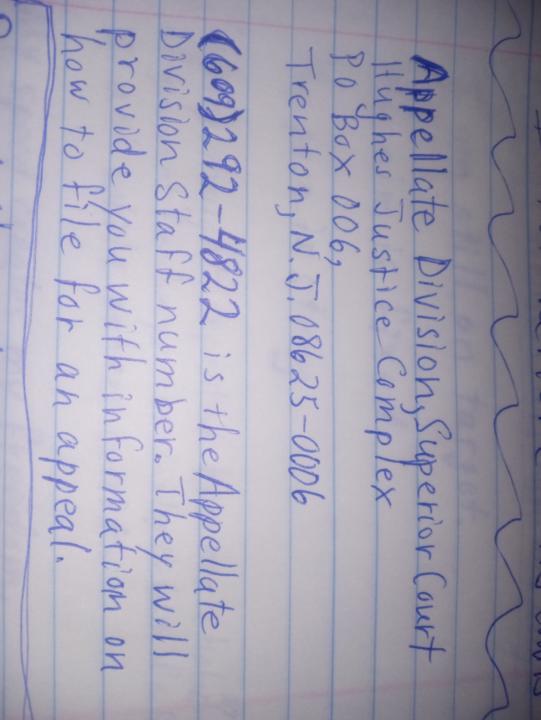 Appellate Division, Superior Court
Hughes Justice Complex
PO Box 006,
Trenton, N.J. 08625-0006
(609)292-4822 is the Appellate
Division Staff number. They will
provide you with information on
how to file for an appeal.